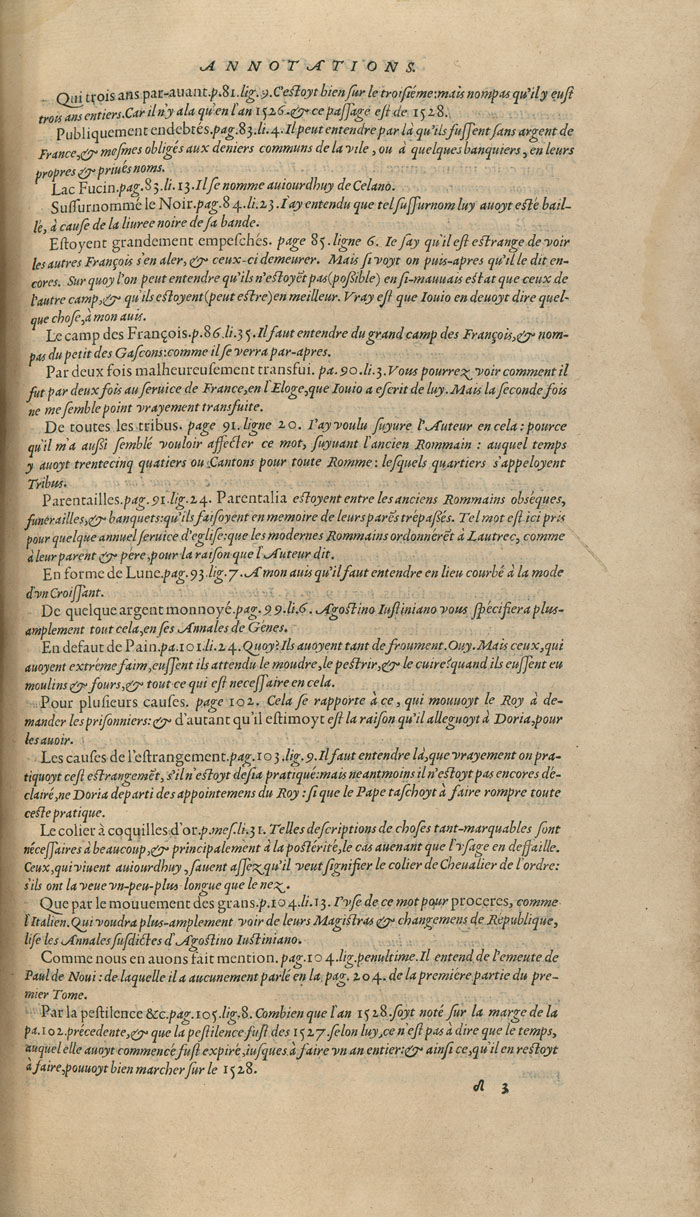 ANNOTATIONS.
Qui trois ans par-auant.p.81.lig.9.C'estoyt bien sur le troisiéme:mais nompas qu'il y eust
trois ans entiers.Car il n'y ala qu'en l'an 1526.& ce passage est de 1528.
Publiquement endebtés.pag.83.li.4.Il peut entendre par là qu'ils fussent sans argent de
France,& mesmes obligés aux deniers communs de la vile, ou à quelques banquiers, en leurs
propres & priués noms.
Lac Fucin.pag.83.li.13.Il se nomme auiourdhuy de Celano.
Sussurnommé le Noir.pag.84.li.23.I'ay entendu que tel sussurnom luy auoyt esté bail-
lé, à cause de la liuree noire de sa bande.
Estoyent grandement empeschés. page 85.ligne 6. Ie say qu'il est estrange de voir
les autres François s'en aler, & ceux-ci demeurer. Mais si voyt on puis-apres qu'il le dit en-
cores. Sur quoy l'on peut entendre qu'ils n'estoyẽt pas(possible) en si-mauuais estat que ceux de
l'autre camp,& qu'ils estoyent(peut estre)en meilleur. Vray est que Iouio en deuoyt dire quel-
que chose,à mon auis.
Le camp des François.p.86.li.35.Il faut entendre du grand camp des François,& nom-
pas du petit des Gascons:comme il se verra par-apres.
Par deux fois malheureusement transfui. pa.90.li.3.Vous pourrez voir comment il
fut par deux fois au seruice de France,en l'Eloge,que Iouio a escrit de luy. Mais la seconde fois
ne me semble point vrayement transfuite.
De toutes les tribus. page 91.ligne 20. I'ay voulu suyure l'Auteur en cela : pource
qu'il m'a aussi semblé vouloir affecter ce mot, suyuant l'ancien Rommain : auquel temps
y auoyt trentecinq quatiers ou Cantons pour toute Romme: lesquels quartiers s'appeloyent
Tribus.
Parentailles.pag.91.lig.24. Parentalia estoyent entre les anciens Rommains obseques,
funerailles,& banquets:qu'ils faisoyent en memoire de leurs parẽs trépassés. Tel mot est ici pris
pour quelque annuel seruice d'eglise:que les modernes Rommains ordonnerẽt à Lautrec, comme
à leur parent & pere,pour la raison que l'Auteur dit.
En forme de Lune.pag.93.lig.7.A mon auis qu'il faut entendre en lieu courbé à la mode
d'vn Croissant.
De quelque argent monnoyé.pag.99.li.6. Agostino Iustiniano vous specifiera plus-
amplement tout cela,en ses Annales de Genes.
En defaut de Pain.pa.101.li.24.Quoy? Ils auoyent tant de froument.Ouy.Mais ceux,qui
auoyent extreme faim,eussent ils attendu le moudre,le pestrir,& le cuire?quand ils eussent eu
moulins & fours,& tout ce qui est necessaire en cela.
Pour plusieurs causes. page 102. Cela se rapporte à ce, qui mouuoyt le Roy à de-
mander les prisonniers:& d'autant qu'il estimoyt est la raison qu'il alleguoyt à Doria,pour
les auoir.
Les causes de l'estrangement.pag.103.lig.9.Il faut entendre là,que vrayement on pra-
tiquoyt cest estrangemẽt, s'il n'estoyt desia pratiqué:mais neantmoins il n'estoyt pas encores dé-
clairé,ne Doria departi des appointemens du Roy : si que le Pape taschoyt à faire rompre toute
ceste pratique.
Le colier à coquilles d'or.p.mes.li.31. Telles descriptions de choses tant-marquables sont
nécessaires à beaucoup,& principalement à la postérité,le cas auenant que l'vsage en deffaille.
Ceux,qui viuent auiourdhuy, sauent assez qu'il veut signifier le colier de Cheualier de l'ordre:
s'ils ont la veue vn-peu-plus longue que le nez.
Que par le mouuement des grans.p.104.li.13.I'vse de ce mot pour proceres, comme
l'Italien.Qui voudra plus-amplement voir de leurs Magistras & changemens de Republique,
lise les Annales susdictes d'Agostino Iustiniano.
Comme nous en auons fait mention. pag.104.lig.penultime.Il entend de l'emeute de
Paul de Noui : de laquelle il a aucunement parlé en la pag.204. de la premiere partie du pre-
mier Tome.
Par la pestilence &c.pag.105.lig.8. Combien que l'an 1528.soyt noté sur la marge de la
pa.102.précedente,& que la pestilence fust des 1527.selon luy,ce n'est pas à dire que le temps,
auquel elle auoyt commencé fust expiré,iusques à faire vn an entier:& ainsi ce,qu'il en restoyt
à faire,pouuoyt bien marcher sur le 1528.
A 3